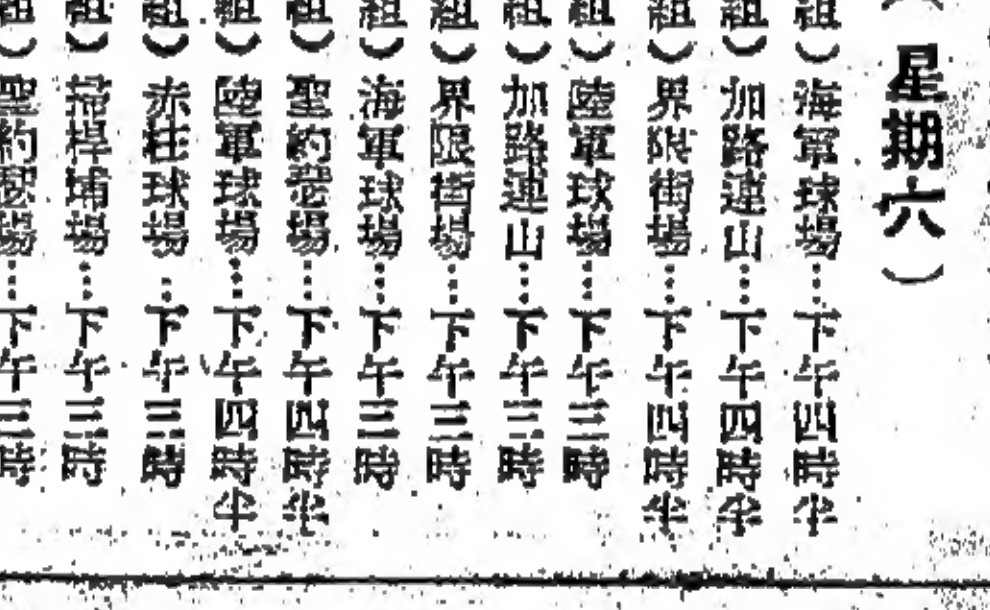 星期六）
組）海軍球場…下午四時半
組）加路連山…下午四時半
組）界限街場…下午四時半
組）陸軍球場…下午三時
組）加路連山…下午三時
組）界限街場…下午三時
組）海軍球場…下午三時
組）聖約瑟場…下午四時半
組）陸軍球場…下午四時半
組）赤柱球場…下午三時
組）掃桿埔場…下午三時
組）聖約瑟場…下午三時